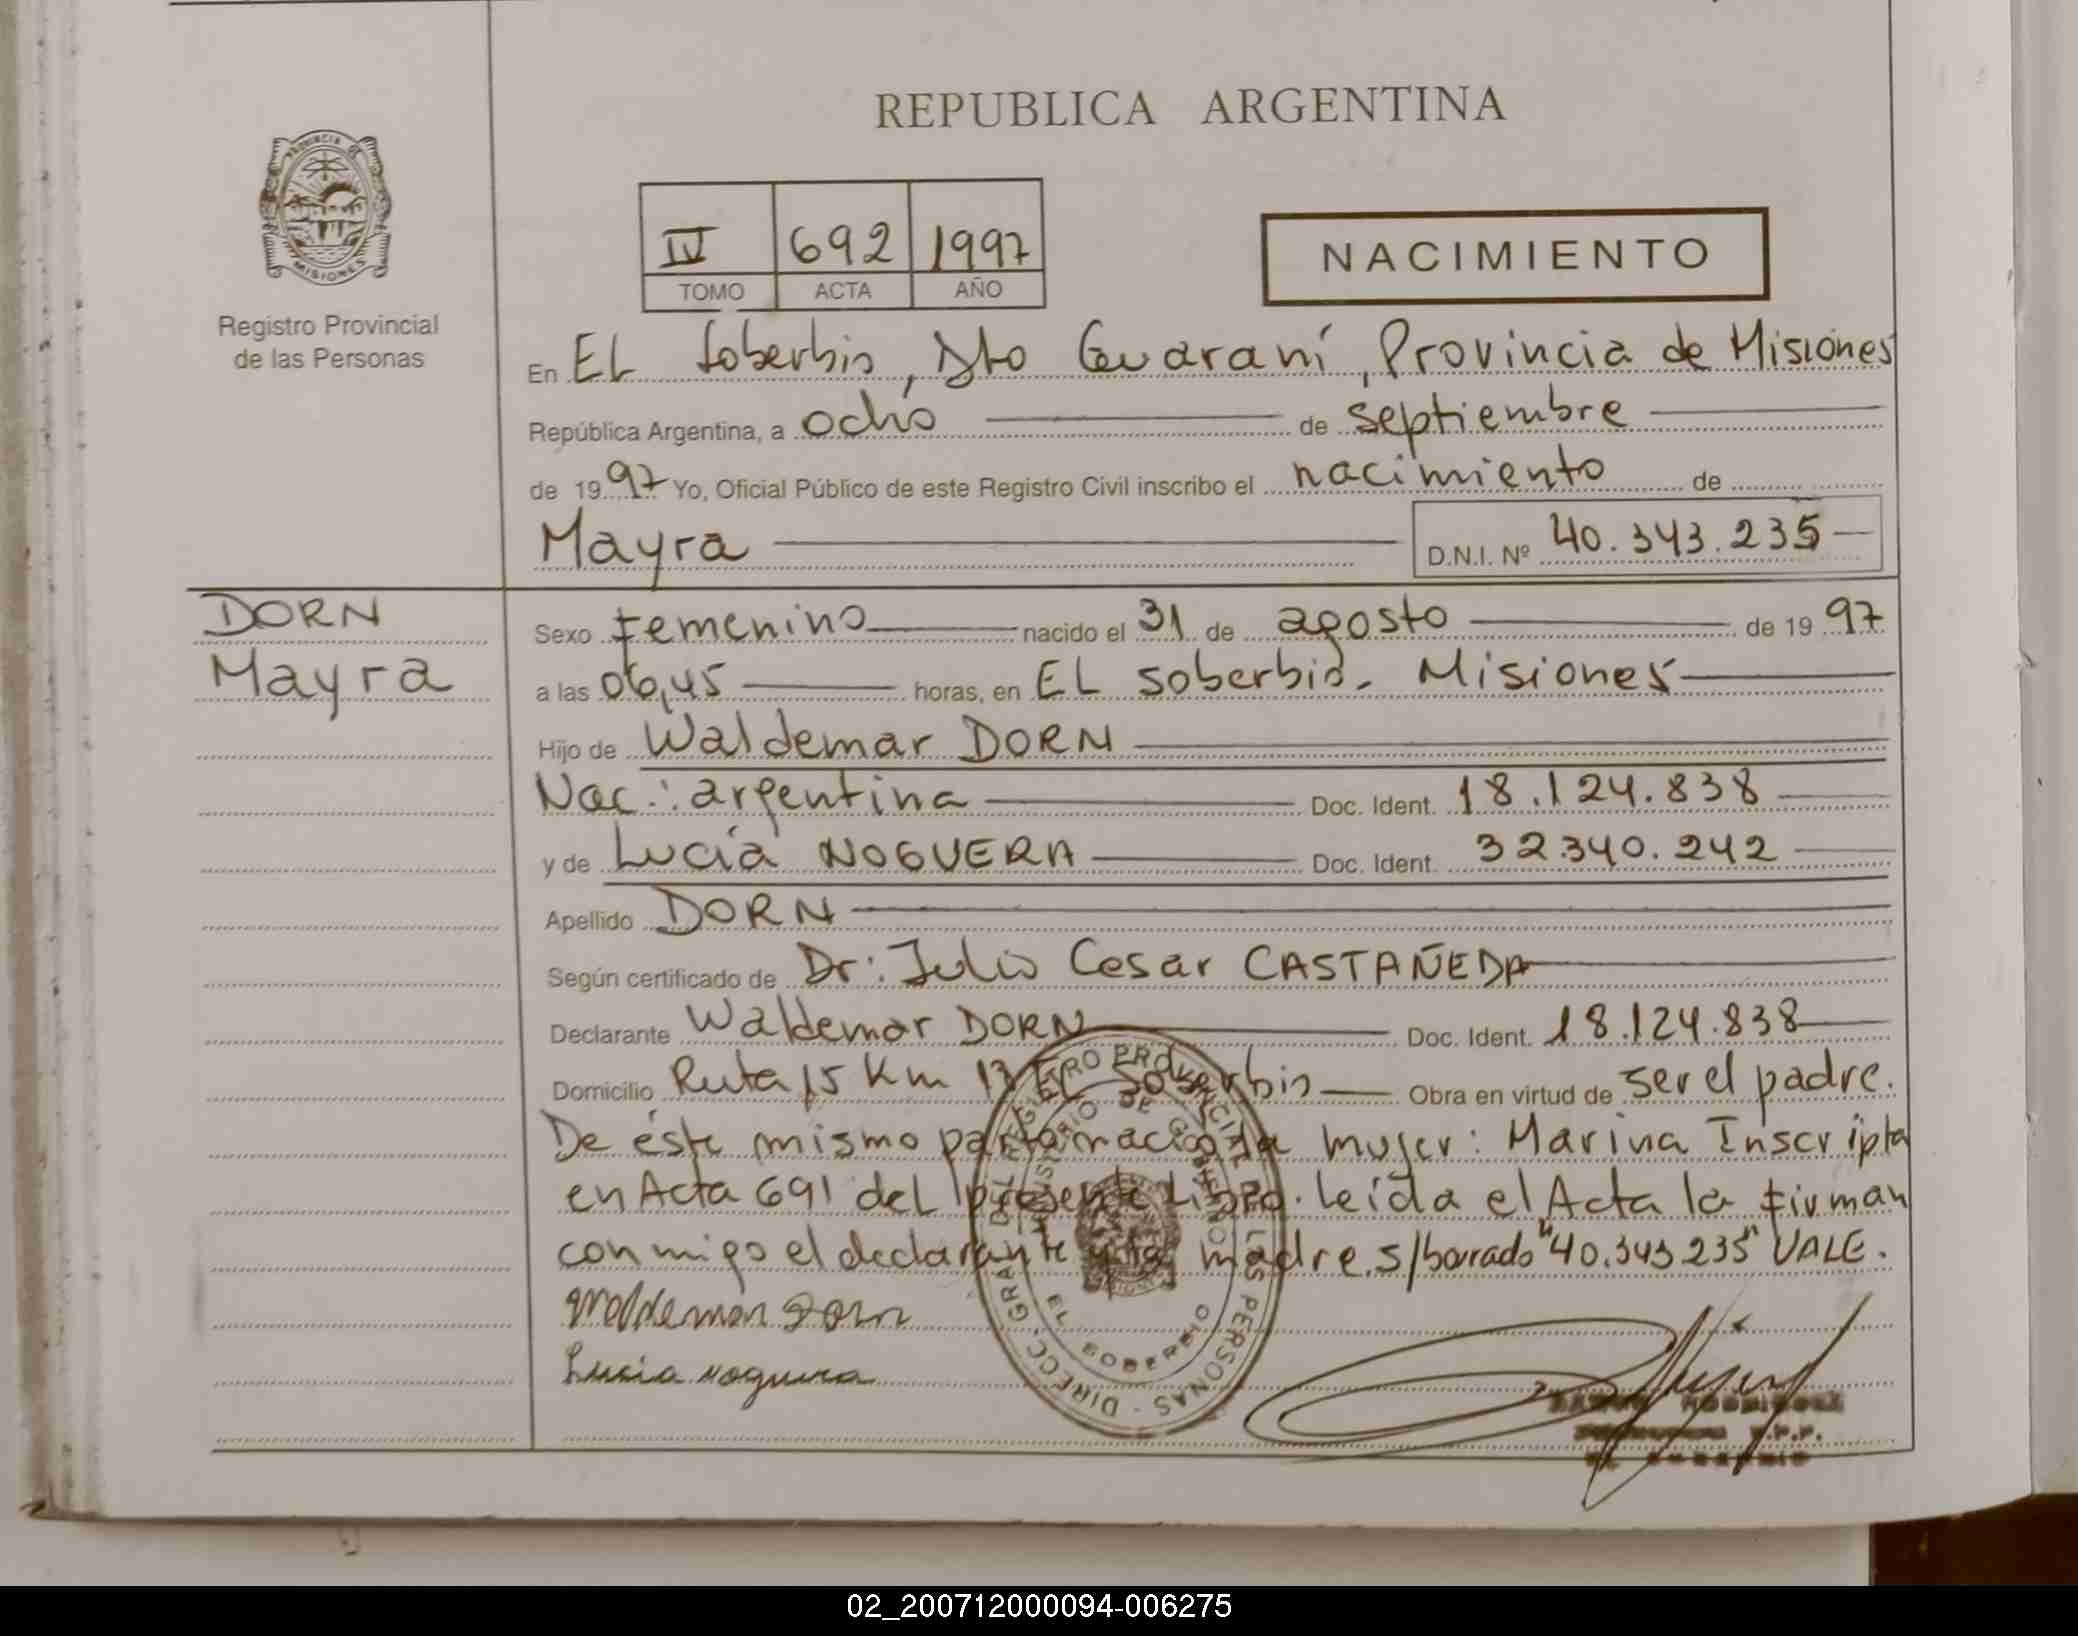 REPUBLICA ARGENTINA
PROVINCIA DE
MISIONES
Registro Provincial
de las Personas
IV 692 1997
TOMO ACTA AÑO
NACIMIENTO
En EL Soberbio, Dto Guaraní, Provincia de Misiones
República Argentina, a ocho de septiembre
de 1997 Yo, Oficial Público de este Registro Civil inscribo el nacimiento de
Mayra D.N.I. Nº 40.343.235
DORN
Mayra
Sexo femenino nacido el 31 de agosto de 1997
a las 06,45 horas, en EL Soberbio. Misiones
Hijo de Waldemar DORN
Nac.: argentina Doc. Ident. 18.124.838
y de Lucía NOGUERA Doc. Ident. 32.340.242
Apellido DORN
Según certificado de Dr: Julio Cesar CASTAÑEDA
Declarante Waldemar DORN Doc. Ident. 18.124.838
Domicilio Ruta 15 Km 13 EL Soberbio Obra en virtud de ser el padre.
De éste mismo parto nacio la mujer: Marina Inscripta
en Acta 691 del presente Libro. Leída el Acta la firman
conmigo el declarante y la madre. s/borrado "40.343.235" VALE.
Waldemar Dorn
Lucia Noguera
DIRECC. GRAL. DEL REGISTRO PROVINCIAL DE LAS PERSONAS
MINISTERIO DE GOBIERNO
EL SOBERBIO
02_200712000094-006275